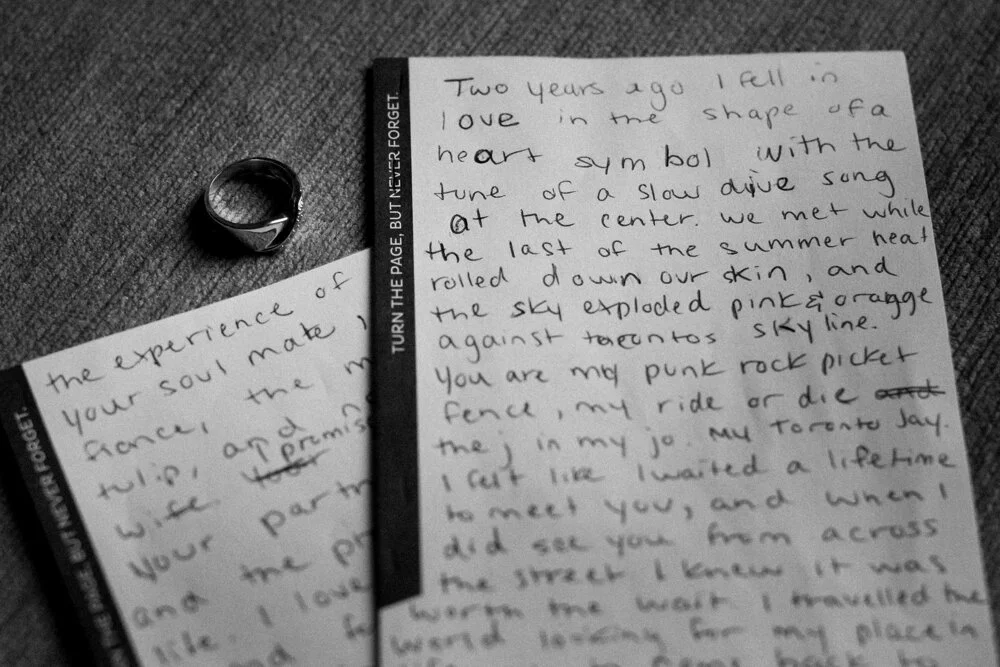 TURN THE PAGE, BUT NEVER FORGET.
Two years ago I fell in
love in the shape of a
heart symbol with the
tune of a slow dive song
at the center. we met while
the last of the summer heat
rolled down our skin, and
the sky exploded pink & oragge
against torontos skyline.
You are my punk rock picket
fence, my ride or die and
the j in my jo. My Toronto Jay.
I felt like I waited a lifetime
to meet you, and when I
did see you from across
the street I knew it was
worth the wait. I travelled the
world looking for my place in
TURN THE PAGE, BUT NEVER FORGET.
the experience of
your soul mate,
fiance, the
tulip, and
wife. promis
your partn
and the pr
life. I love
and